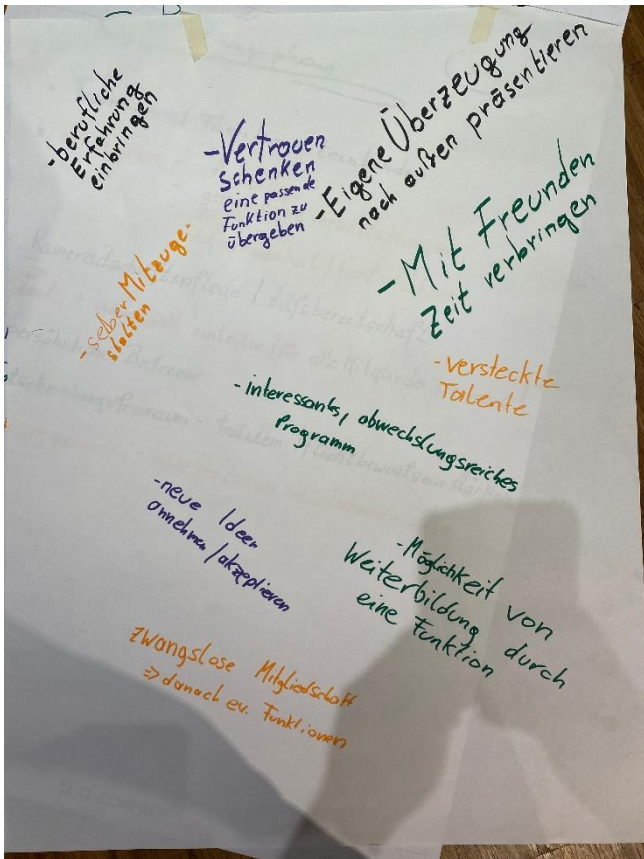 - berufliche
Erfahrung
einbringen
- Vertrauen
schenken
eine passende
Funktion zu
übergeben
- Eigene Überzeugung
nach außen präsentieren
- Mit Freunden
Zeit verbringen
- selber Mitzuge-
stalten
- versteckte
Talente
- interessants, abwechslungsreiches
Programm
- neue Ideen
annehmen / akzeptieren
- Möglichkeit von
Weiterbildung durch
eine Funktion
zwangslose Mitgliedschaft
=> danach ev. Funktionen